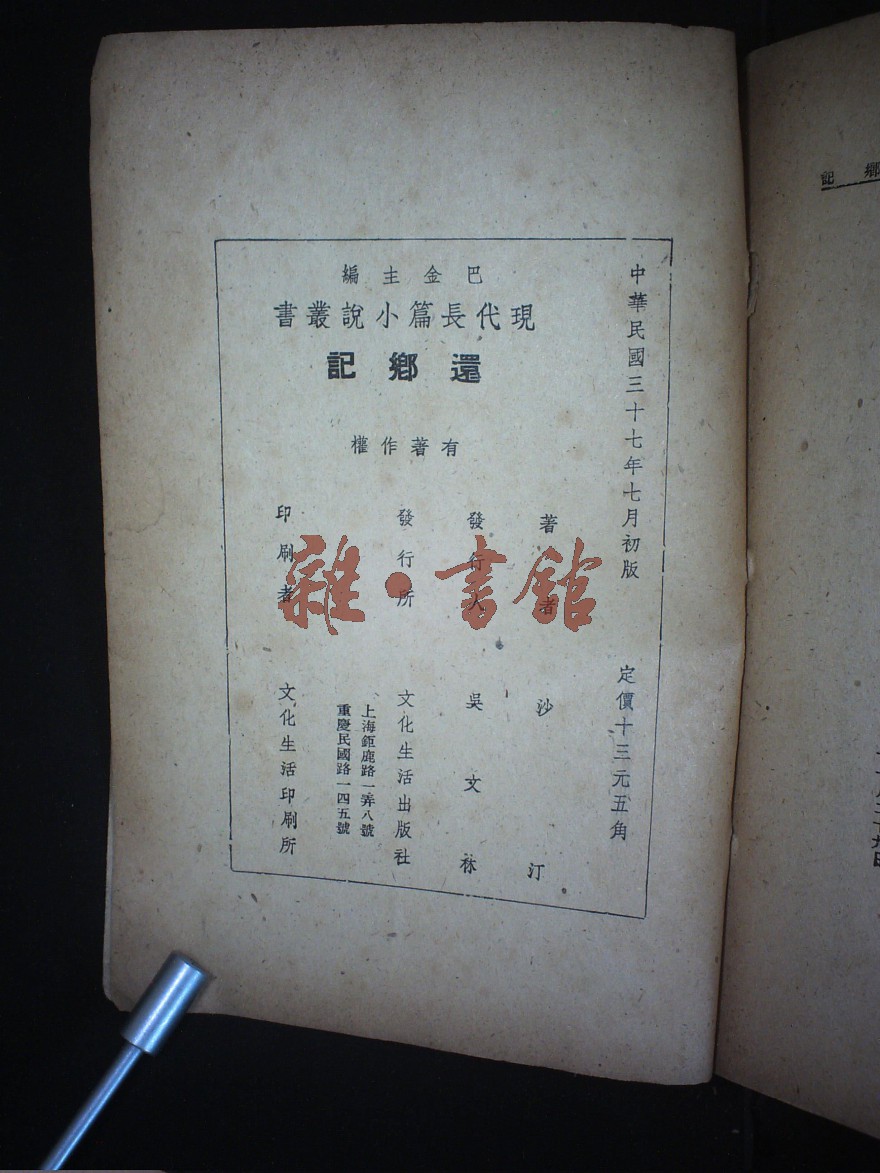 中華民國三十七年七月初版
定價十三元五角
巴金主編
現代長篇小說叢書
還鄉記
有著作權
著者 沙汀
發行人 吳文林
發行所 文化生活出版社
上海鉅鹿路一弄八號
重慶民國路一四五號
印刷者 文化生活印刷所
雜·書館
鄉記